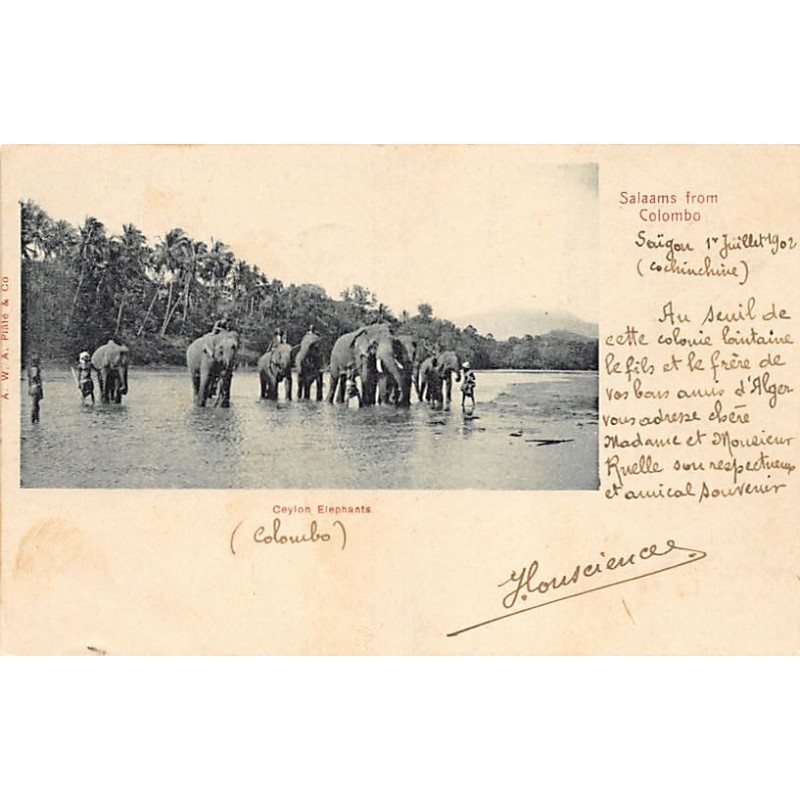 Salaams from
Colombo
Saïgon 1er Juillet 1902
(Cochinchine)
Au seuil de
cette colonie lointaine
le fils et le frère de
vos bons amis d'Alger
vous adresse chère
Madame et Monsieur
Ruelle son respectueux
et amical souvenir
A. W. A. Plâté & Co
Ceylon Elephants.
(Colombo)